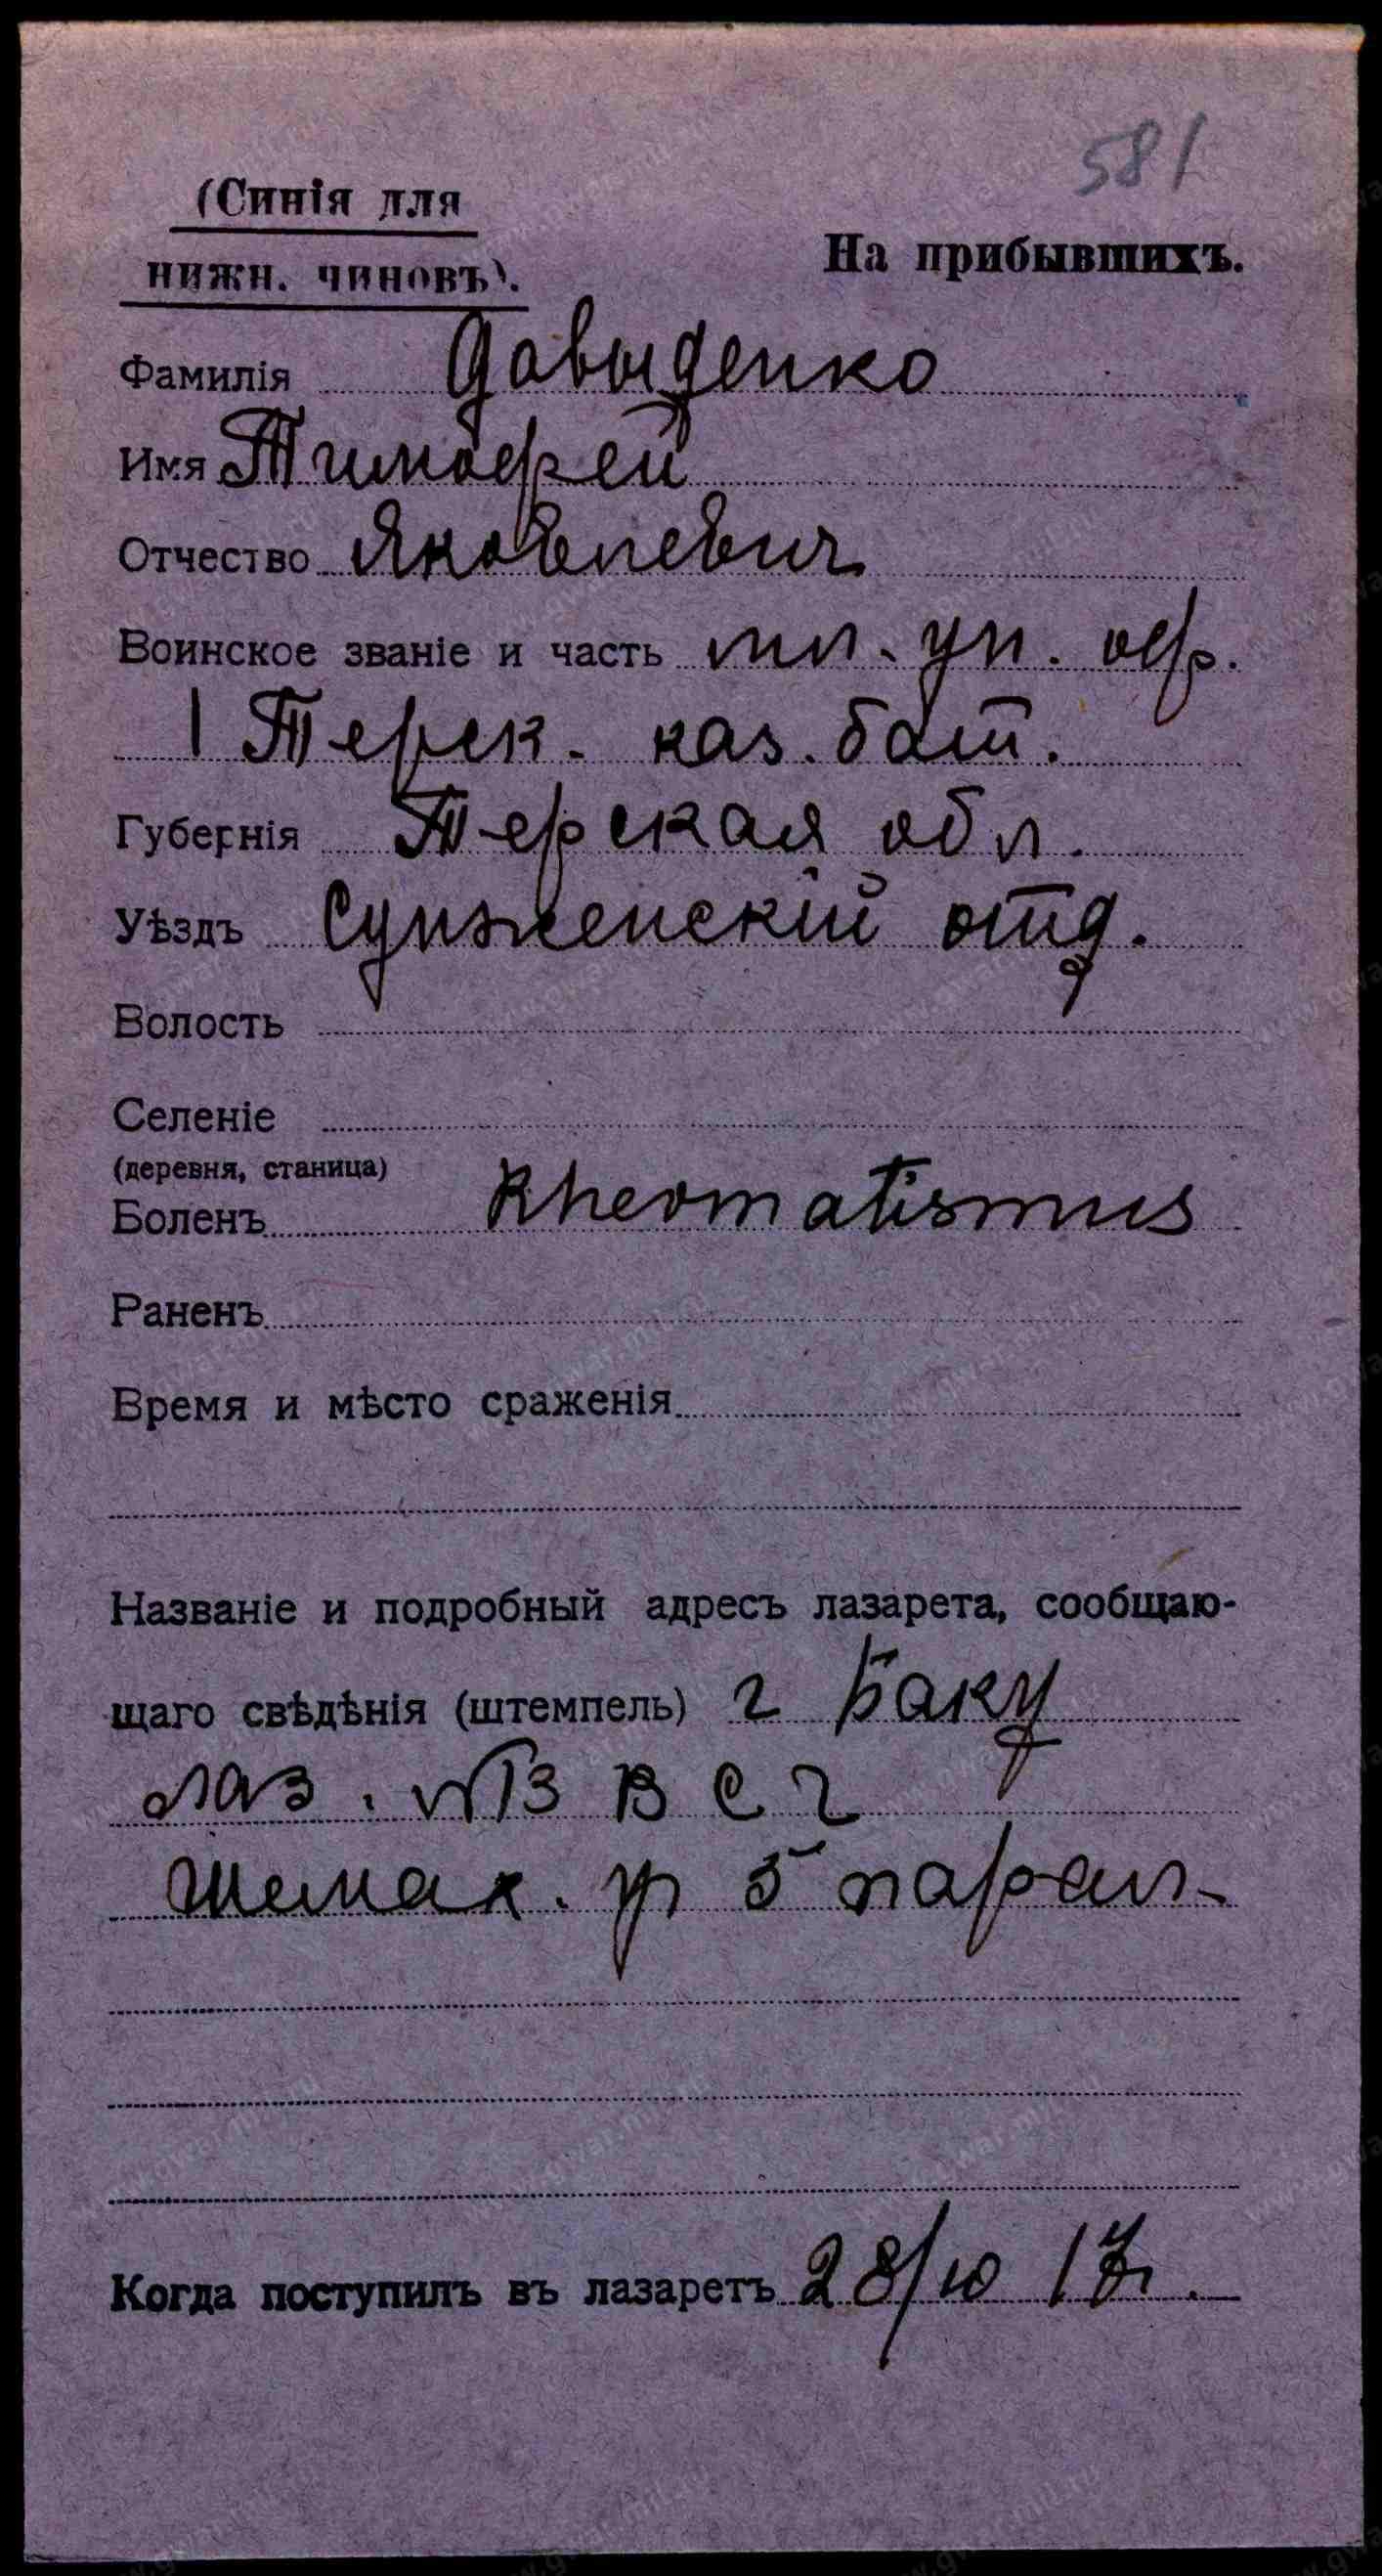 581
(Синія для
На прибывшихъ.
нижн. чиновъ).
Фамилія Давыденко
Имя Тимофей
Отчество Яковлевич
Воинское званіе и часть мл. ун. оф.
1 Терск. каз. бат.
Губернія Терская обл.
Уѣздъ Сунженскій отд.
Волость
Селеніе
(деревня, станица)
Боленъ Rheomatismus
Раненъ
Время и мѣсто сраженія
Названіе и подробный адресъ лазарета, сообщаю-
щаго свѣдѣнія (штемпель) г Баку
лаз. №13 В С Г
Шемах. ул 5 парал-
Когда поступилъ въ лазаретъ 28/10 17г.